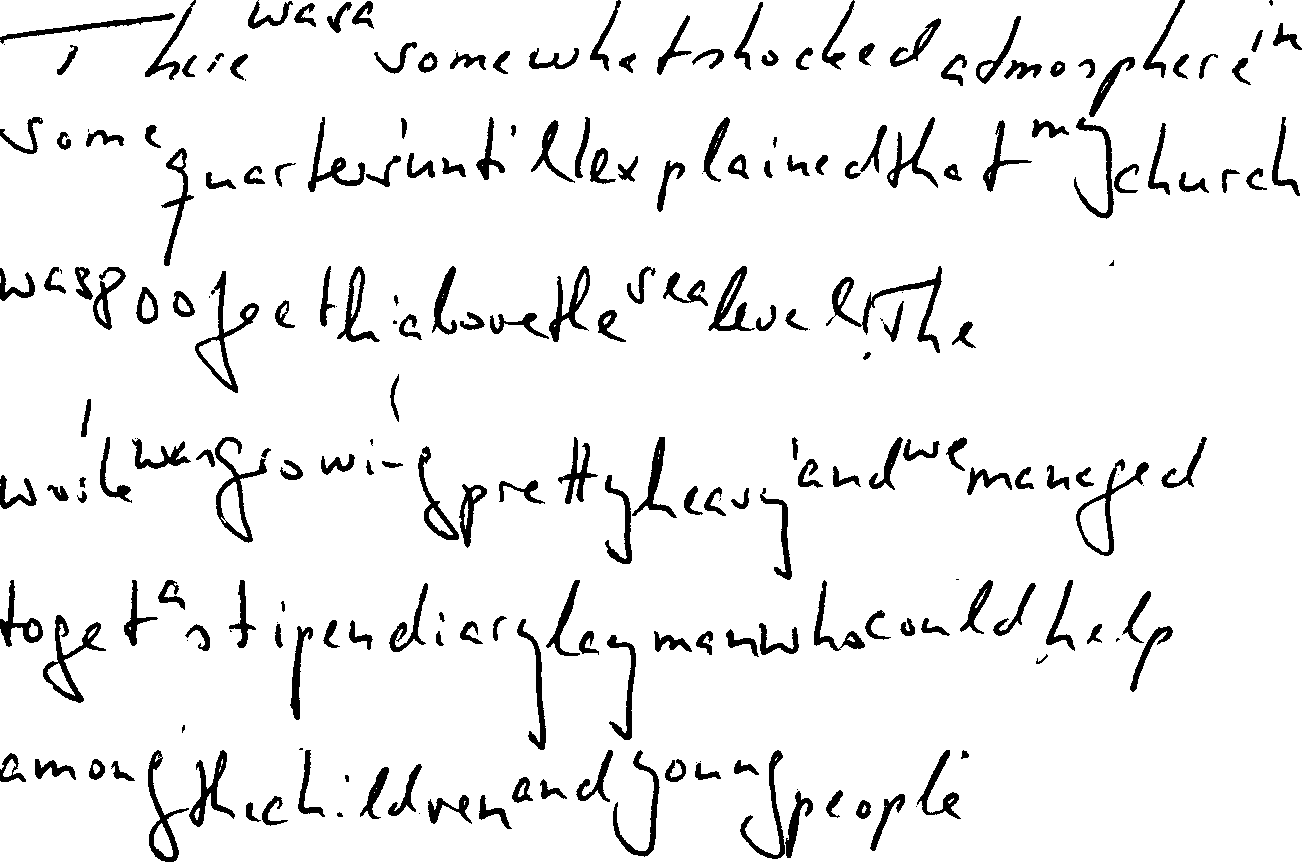 There was a somewhat shocked admosphere in
some quarters until I explained that my church
was 800 feet hi above the sea level. The
work was growing pretty heavy and we managed
to get a stipendiary layman who could help
among the children and young people